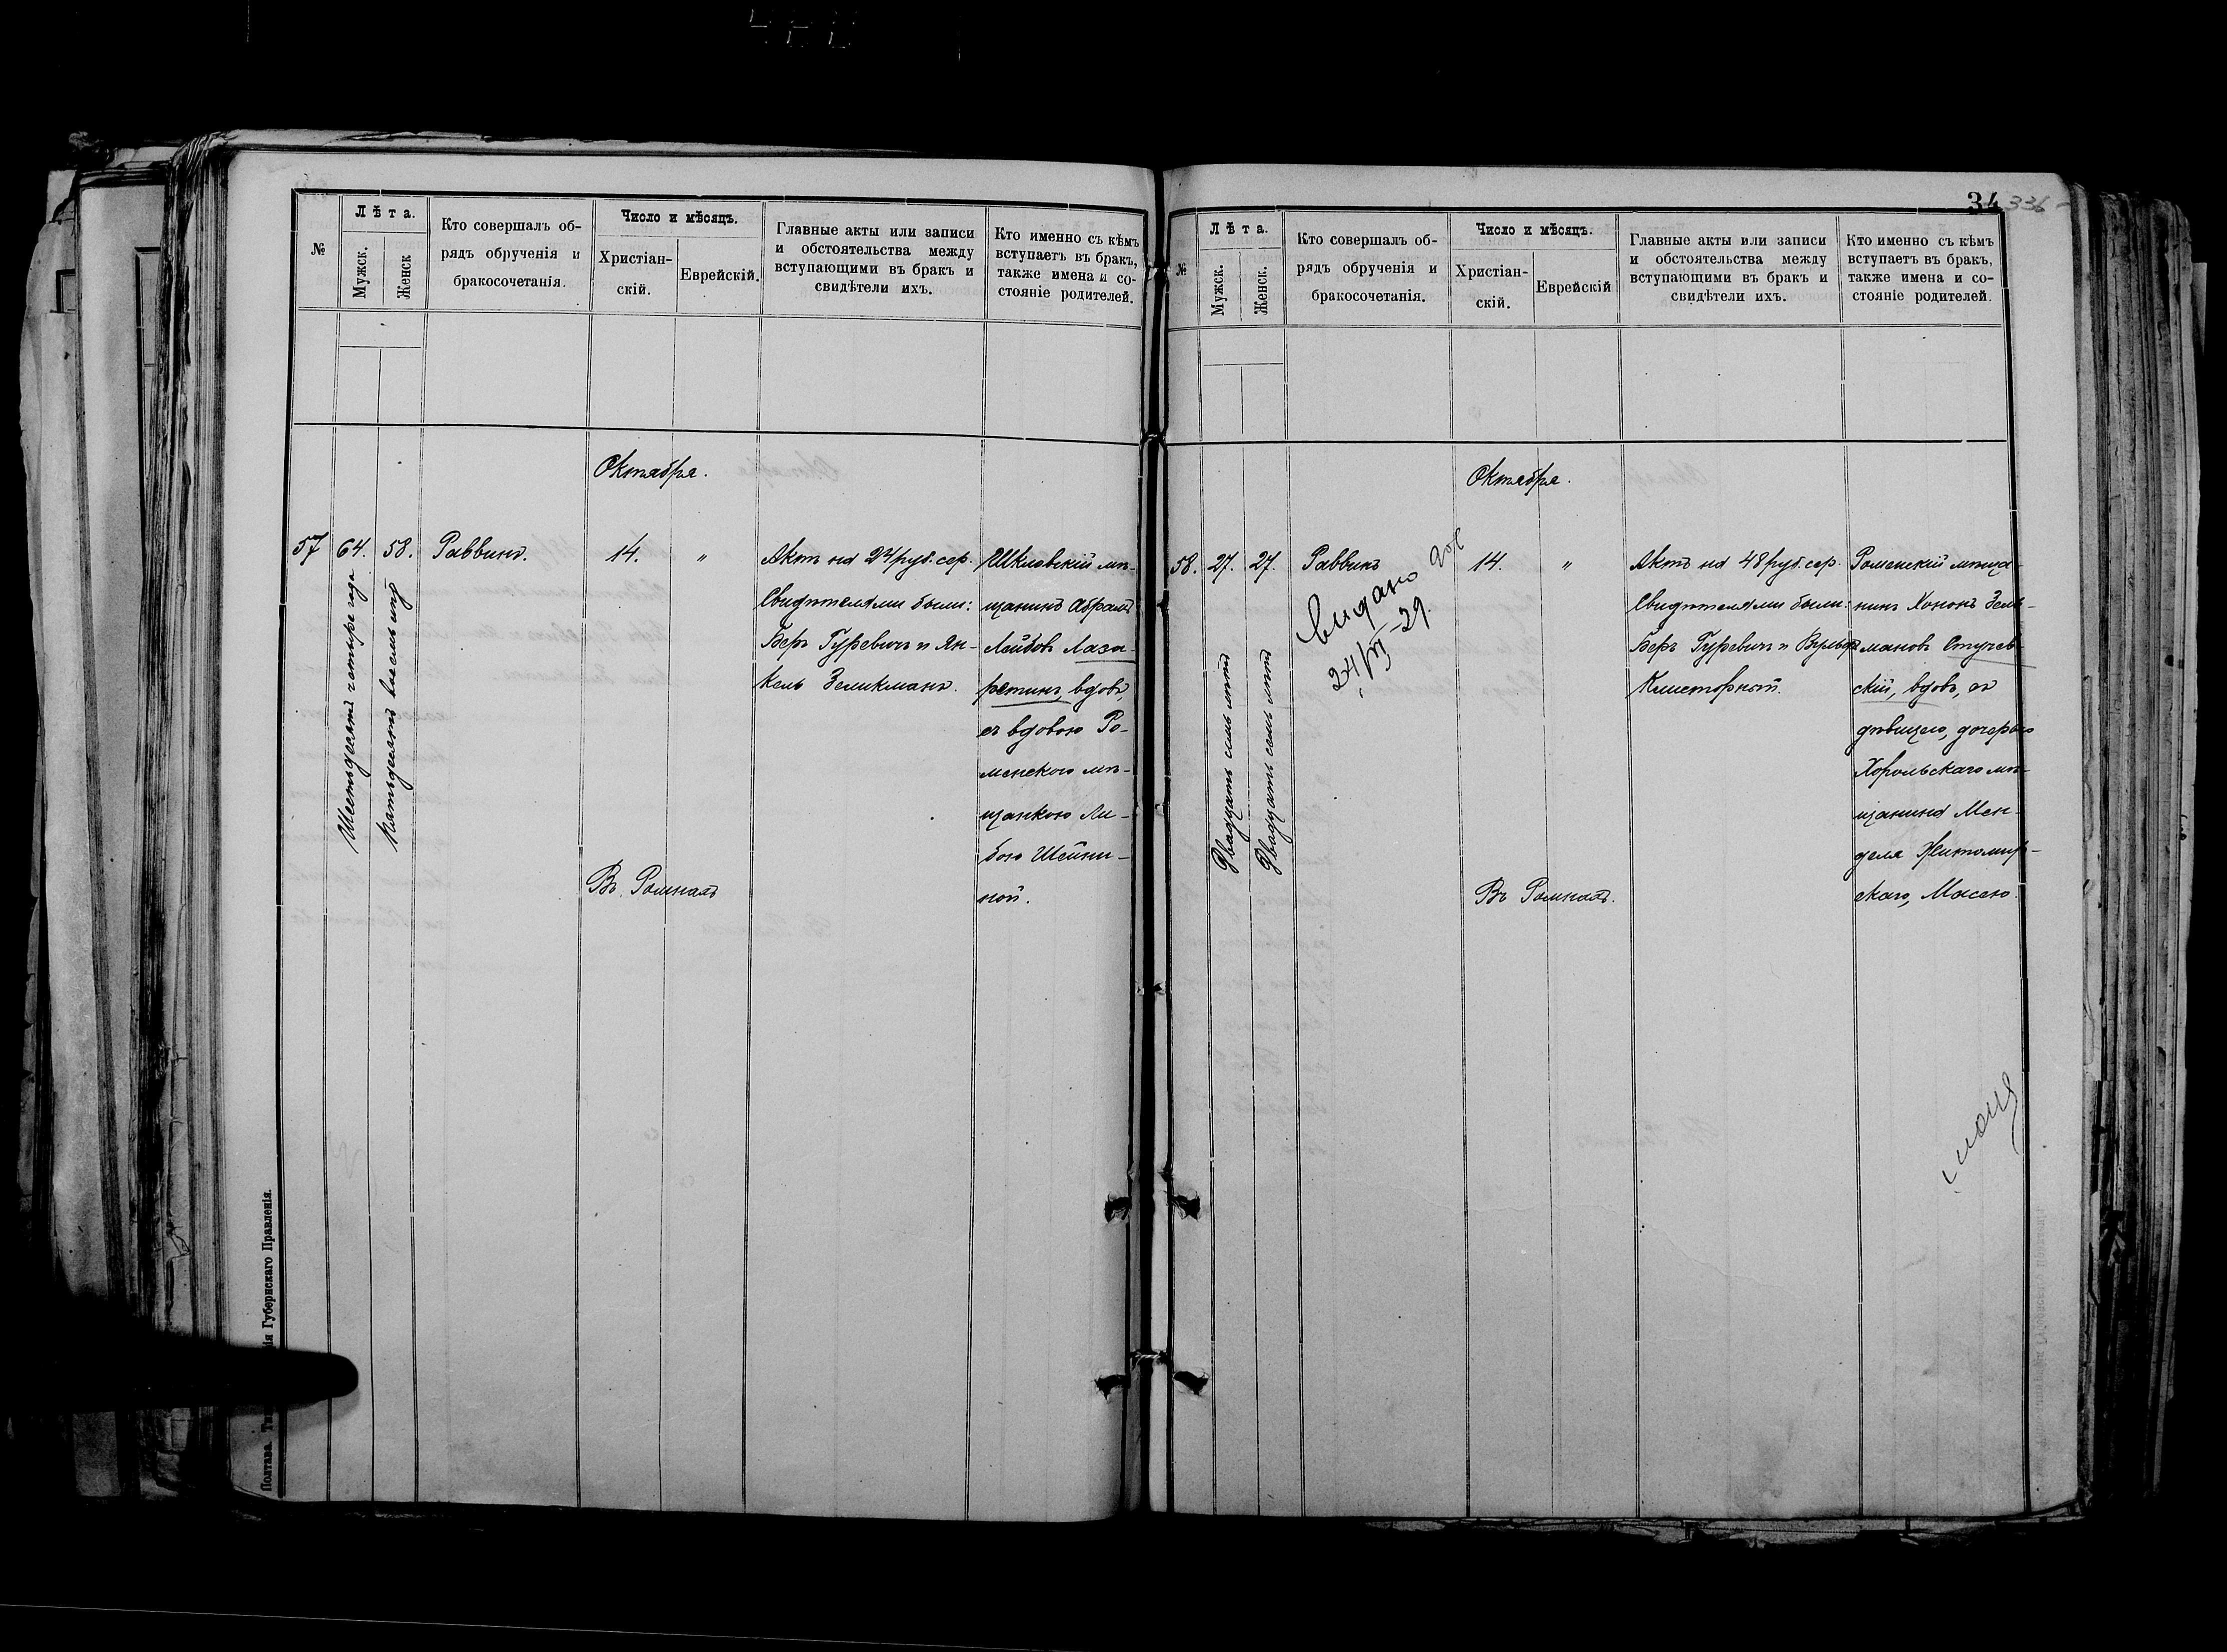 №
Лѣта.
Мужск.
Женск
Кто совершалъ об-
рядъ обрученія и
бракосочетанія.
Число и мѣсяцъ.
Христіан-
скій.
Еврейскій.
Главные акты или записи
и обстоятельства между
вступающими въ бракъ и
свидѣтели ихъ.
Кто именно съ кѣмъ
вступаетъ въ бракъ,
также имена и со-
стояніе родителей.
Октября.
57
64.
Шестьдесятъ четыре года
58.
Пятьдесятъ восемь лѣтъ
Раввинъ.
14.
"
Въ Ромнахъ
Актъ на 24 руб. сер.
Свидѣтелями были:
Беръ Гуревичъ и Ян-
кель Зеликманъ.
Шкловскій мѣ-
щанинъ Абрамъ
Лейбовъ Лаза-
ретинъ, вдовъ,
съ вдовою Ро-
менскою мѣ-
щанкою Ли-
бою Шейни-
ной.
Полтава. Ти
ія Губернскаго Правленія.
34
336
№
Лѣта.
Мужск.
Женск.
Кто совершалъ об-
рядъ обрученія и
бракосочетанія.
Число и мѣсяцъ.
Христіан-
скій.
Еврейскій
Главные акты или записи
и обстоятельства между
вступающими въ бракъ и
свидѣтели ихъ.
Кто именно съ кѣмъ
вступаетъ въ бракъ,
также имена и со-
стояніе родителей.
Октября.
58.
27.
Двадцать семь лѣтъ
27.
Двадцать семь лѣтъ
Раввинъ
видано
24/VI-29.
14.
"
Въ Ромнахъ.
Актъ на 48 руб. сер.
Свидѣтелями были:
Беръ Гуревичъ и Вульфъ
Клисторнъ.
Роменскій мѣща-
нинъ Хононъ Зель-
мановъ Стучев-
скій, вдовъ, съ
дѣвицею, дочерью
Хорольскаго мѣ-
щанина Мен-
деля Житомир-
скаго, Масею.